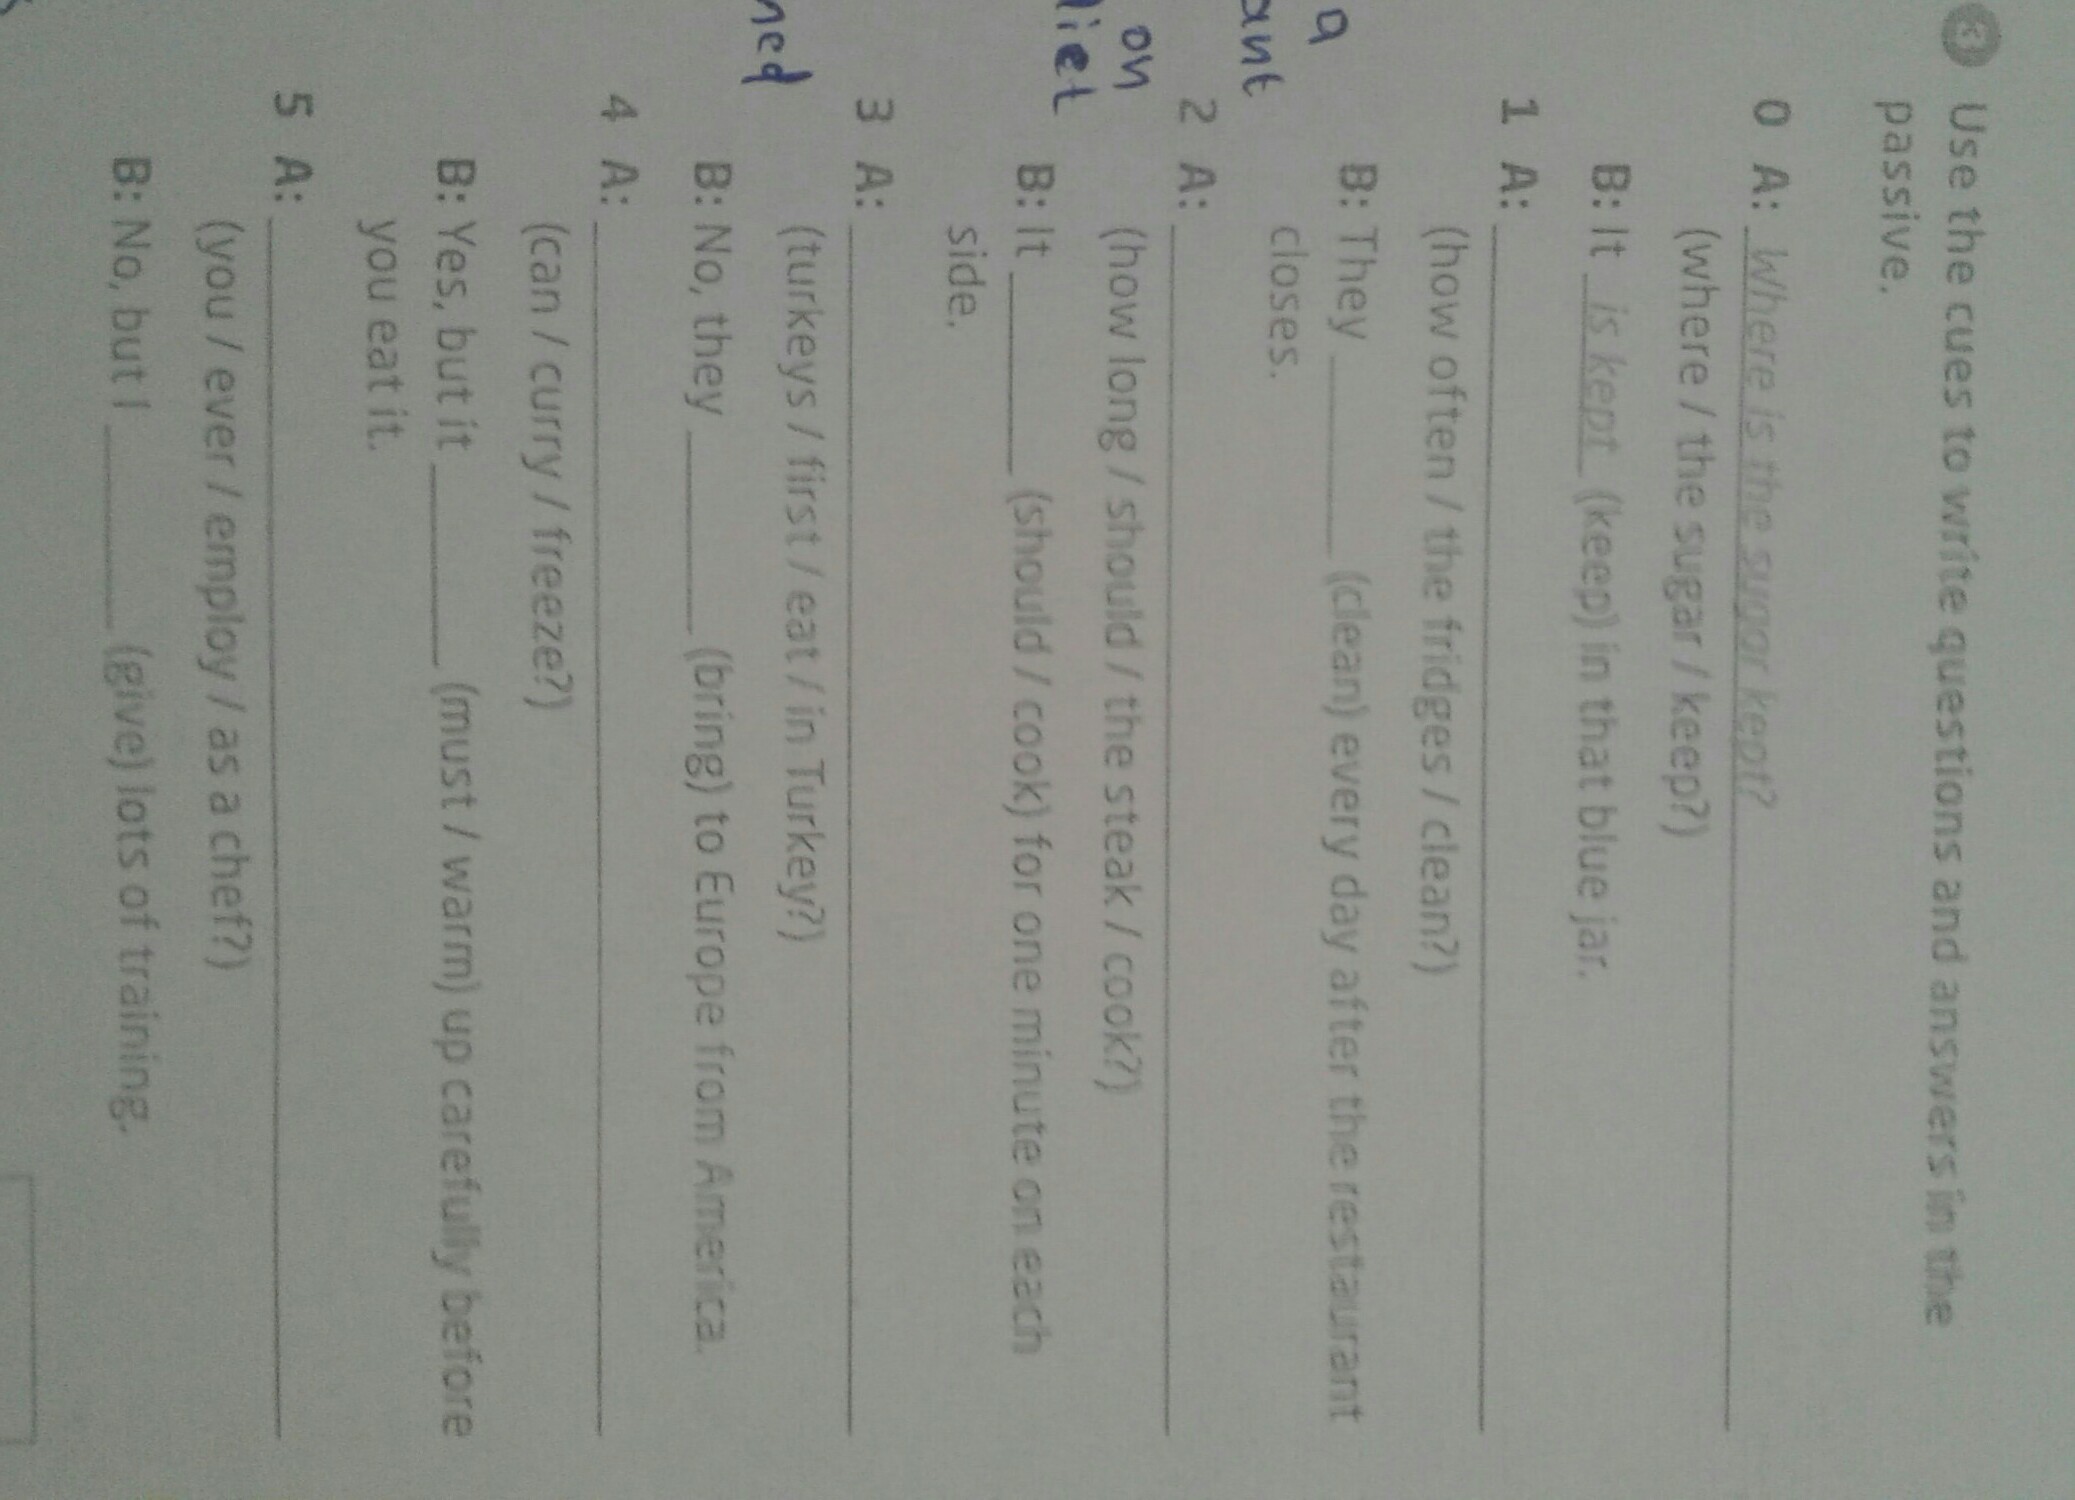 Use the cues to write questions and answers in the
passive.
0 A: Where is the sugar kept?
(where / the sugar / keep?)
B: It is kept (keep) in that blue jar.
1 A:
(how often / the fridges / clean?)
B: They ______ (clean) every day after the restaurant
closes.
2 A:
(how long / should / the steak / cook?)
B: It ______ (should / cook) for one minute on each
side.
3 A:
(turkeys / first / eat / in Turkey?)
B: No, they ______ (bring) to Europe from America.
4 A:
(can / curry / freeze?)
B: Yes, but it ______ (must / warm) up carefully before
you eat it.
5 A:
(you / ever / employ / as a chef?)
B: No, but I ______ (give) lots of training.
a
ant
on
diet
ned